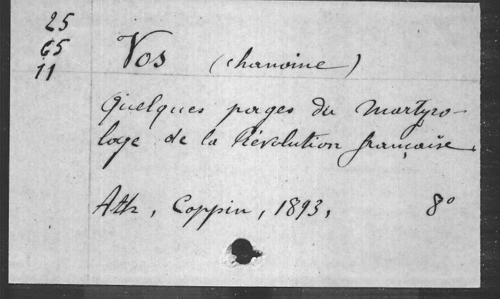 25
65
11
Vos (chanoine)
Quelques pages du martyro-
loge de la Révolution française.
Ath, Coppin, 1893, 8°